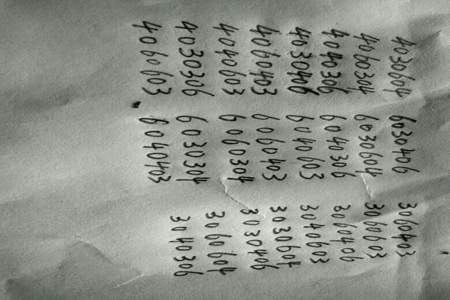 4030604 6030406 3060403
4060304 6030604 3060603
4040306 6040306 3060406
4030406 6040603 3040603
4060403 6060403 3030604
4040603 6060304 3030406
4030306 6030304 3060604
4060603 6040403 3040306